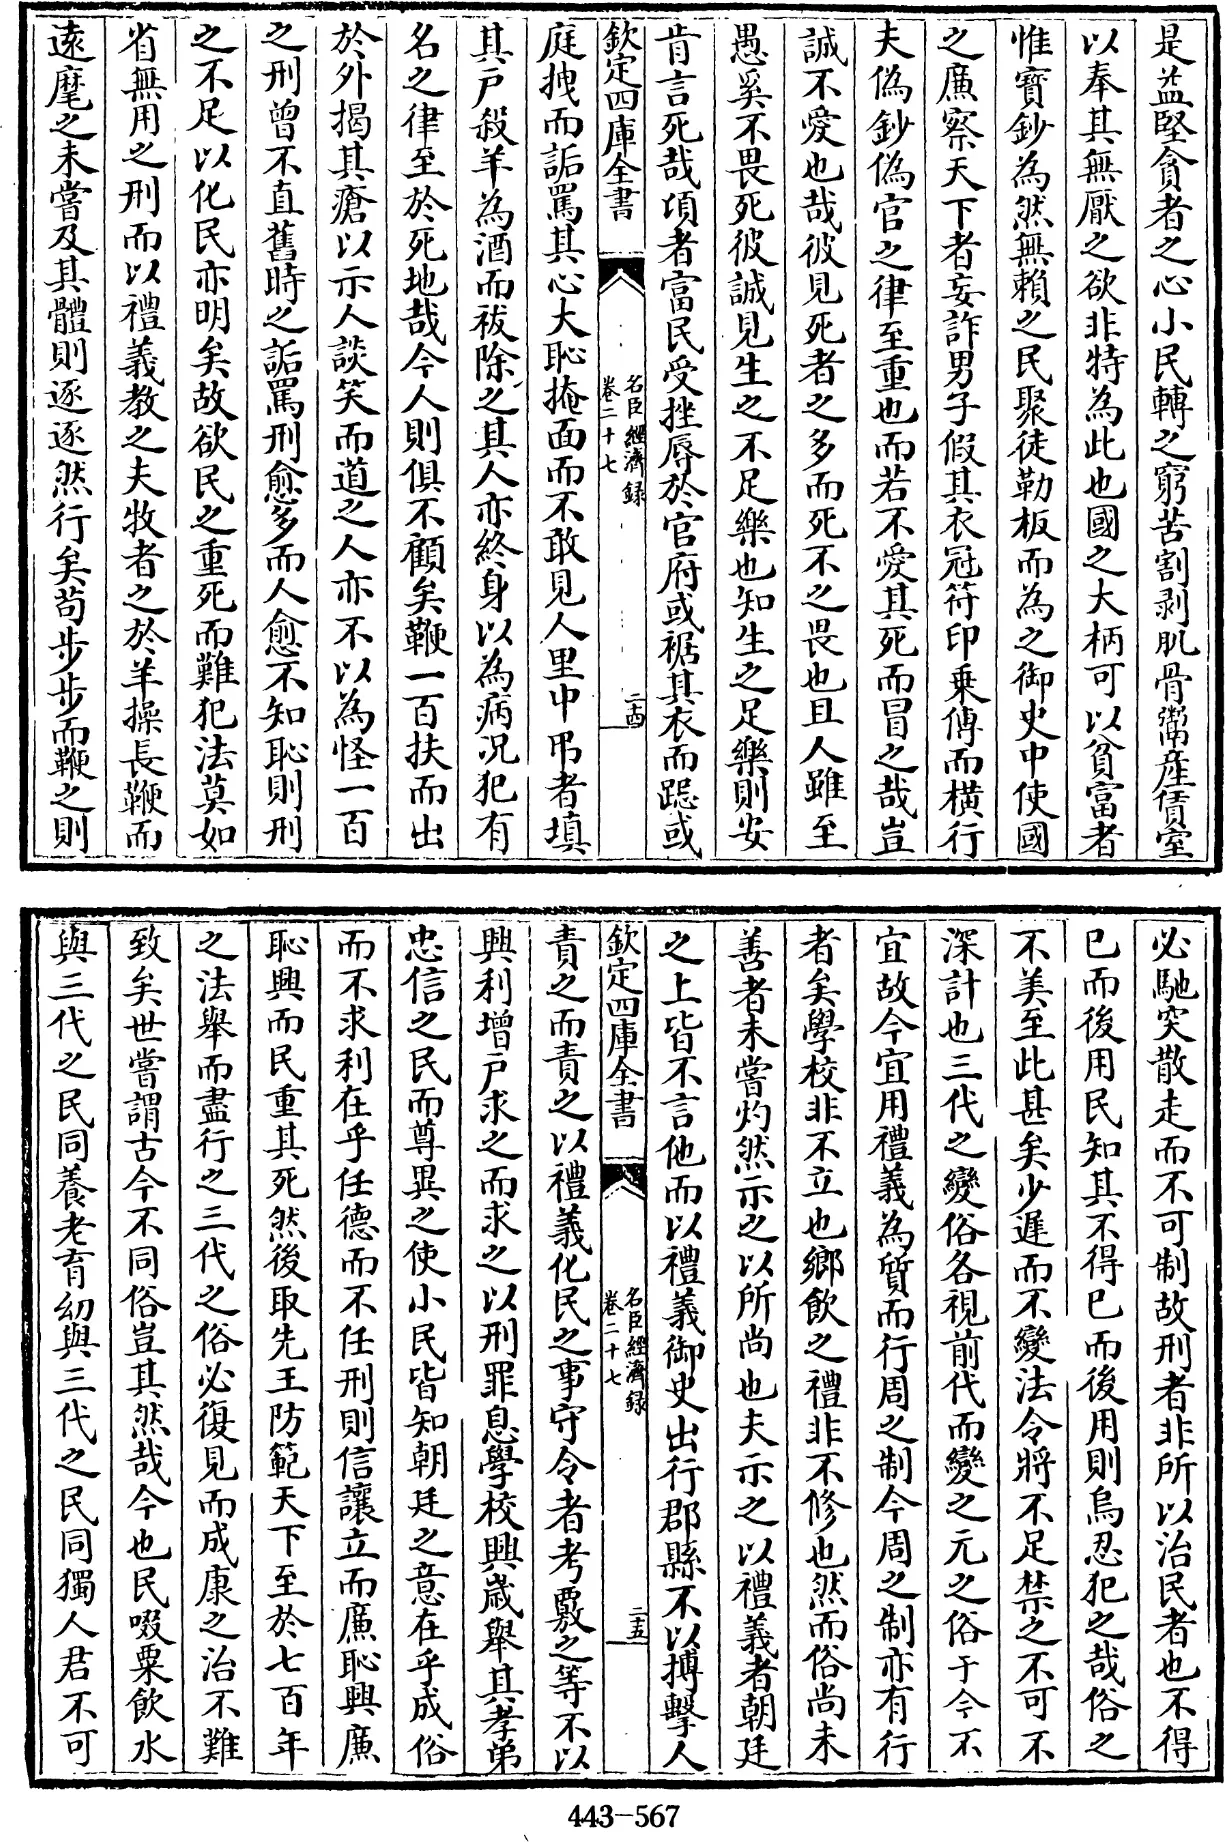 是益堅貪者之心小民轉之窮苦割剥肌骨鬻產債室
以奉其無厭之欲非特為此也國之大柄可以貧富者
惟寳鈔為然無賴之民聚徒勒板而為之御史中使國
之廉察天下者妄詐男子假其衣冠符印乗傳而横行
夫偽鈔偽官之律至重也而若不愛其死而冒之哉豈
誠不愛也哉彼見死者之多而死不之畏也且人雖至
愚奚不畏死彼誠見生之不足樂也知生之足樂則安
肯言死哉頃者富民受挫辱於官府或裾其衣而跽或
欽定四庫全書
名臣經濟録
卷二十七
二十四
庭拽而詬罵其心大恥掩面而不敢見人里中弔者填
其戸殺羊為酒而袚除之其人亦終身以為病况犯有
名之律至於死地哉今人則俱不顧矣鞭一百扶而出
於外揭其瘡以示人談笑而道之人亦不以為怪一百
之刑曾不直舊時之詬罵刑愈多而人愈不知恥則刑
之不足以化民亦明矣故欲民之重死而難犯法莫如
省無用之刑而以禮義教之夫牧者之於羊操長鞭而
逺麾之未嘗及其體則逐逐然行矣茍步步而鞭之則
必馳突散走而不可制故刑者非所以治民者也不得
已而後用民知其不得已而後用則烏忍犯之哉俗之
不美至此甚矣少遲而不變法令將不足禁之不可不
深計也三代之變俗各視前代而變之元之俗于今不
宜故今宜用禮義為質而行周之制今周之制亦有行
者矣學校非不立也鄉飲之禮非不修也然而俗尚未
善者未嘗灼然示之以所尚也夫示之以禮義者朝廷
之上皆不言他而以禮義御史出行郡縣不以搏擊人
欽定四庫全書
名臣經濟録
卷二十七
二十五
責之而責之以禮義化民之事守令者考覈之等不以
興利增戸求之而求之以刑罪息學校興嵗舉其孝弟
忠信之民而尊異之使小民皆知朝廷之意在乎成俗
而不求利在乎任德而不任刑則信讓立而廉恥興廉
恥興而民重其死然後取先王防範天下至於七百年
之法舉而盡行之三代之俗必復見而成康之治不難
致矣世嘗謂古今不同俗豈其然哉今也民啜粟飲水
與三代之民同養老育幼與三代之民同獨人君不可
443-567